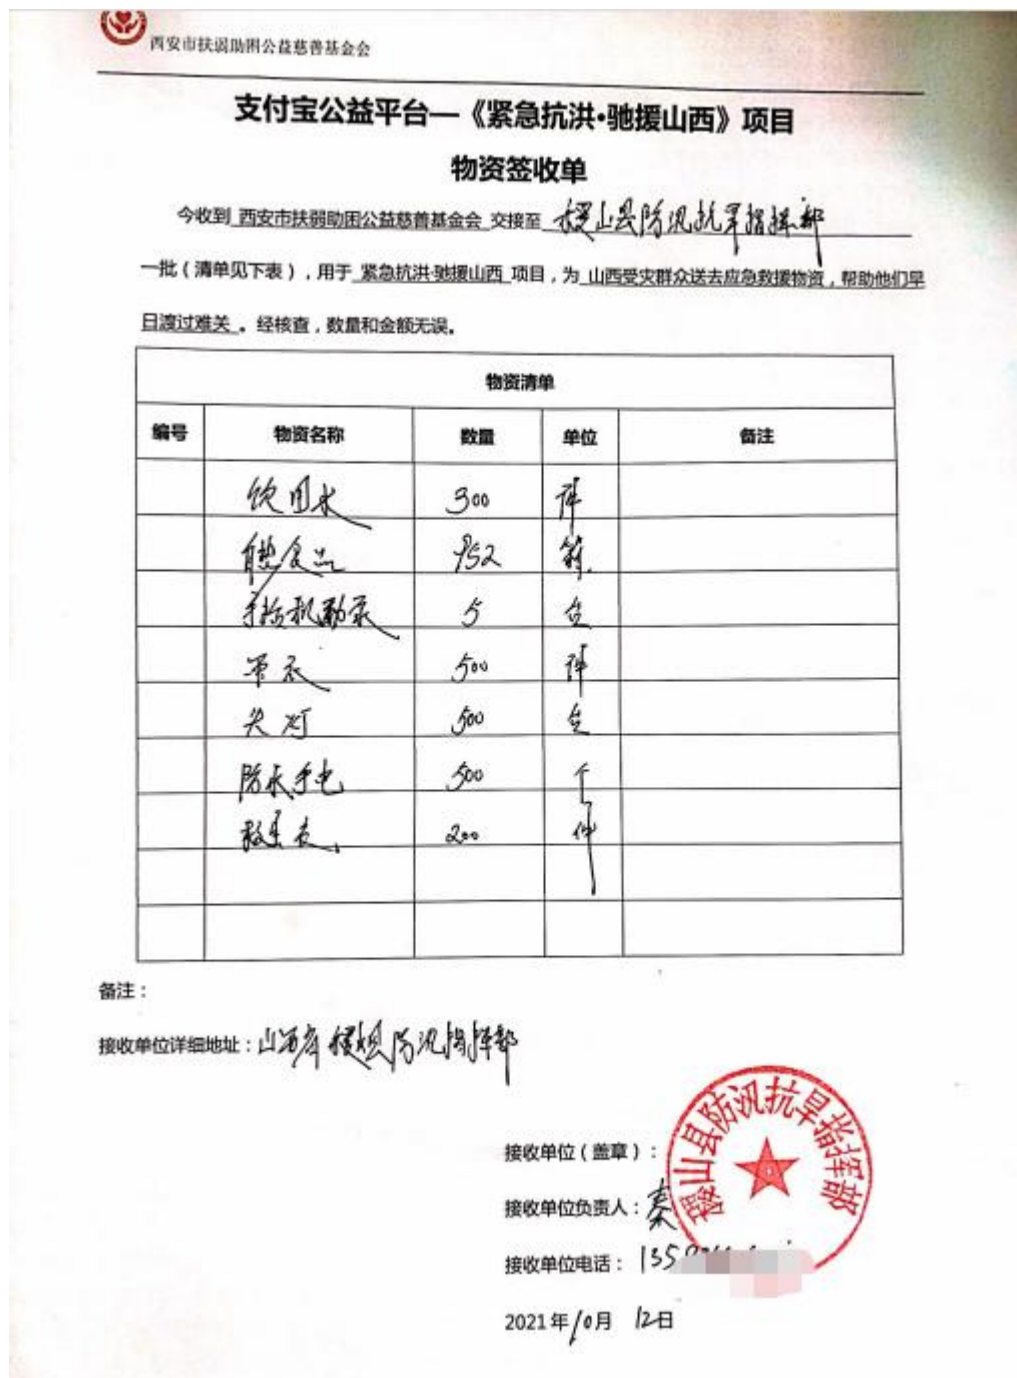 西安市扶弱助困公益慈善基金会
支付宝公益平台—《紧急抗洪·驰援山西》项目
物资签收单
今收到 西安市扶弱助困公益慈善基金会 交接至 稷山县防汛抗旱指挥部
一批（清单见下表），用于 紧急抗洪·驰援山西 项目，为 山西受灾群众送去应急救援物资，帮助他们早
日渡过难关 。经核查，数量和金额无误。
物资清单
编号 物资名称 数量 单位 备注
饮用水 300 件
自热食品 952 箱
手抬机动泵 5 台
雨衣 500 件
头灯 500 台
防水手电 500 个
救生衣 200 件
备注：
接收单位详细地址：山西省稷山县防汛指挥部
稷山县防汛抗旱指挥部
接收单位（盖章）：
接收单位负责人：秦
接收单位电话：135
2021年10月 12日